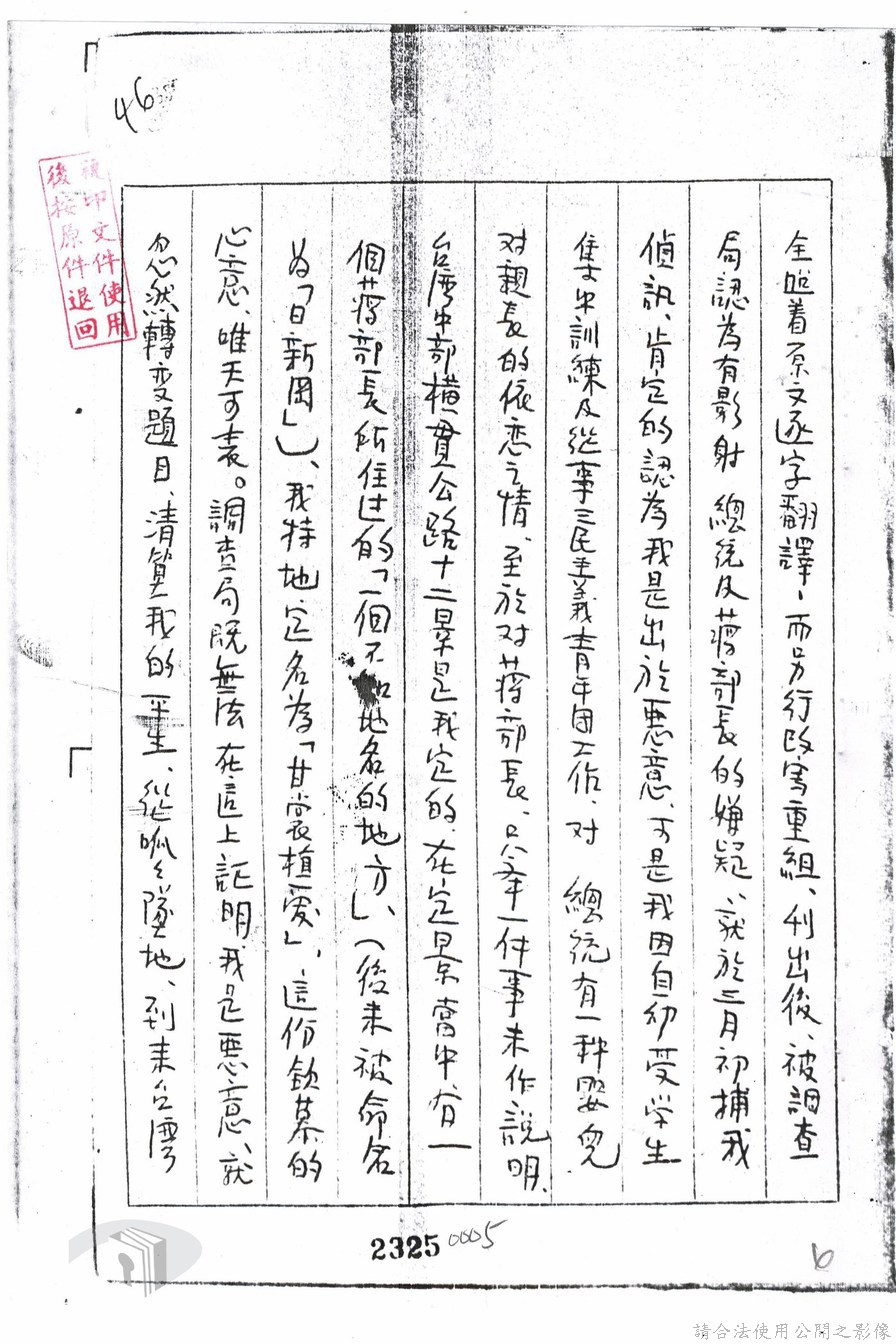 46
複印文件使用
後按原件退回
全照着原文逐字翻譯、而另行改寫重組、刊出後、被調查
局認為有影射 總統及蔣部長的嫌疑、就於三月初捕我
偵訊、肯定的認為我是出於惡意、可是我因自幼受学生
集中訓練及從事三民主義青年团工作、对 總統有一种嬰兒
对親長的依恋之情、至於对蔣部長、只举一件事来作說明、
台湾中部橫貫公路十二景是我定的、在定景當中有一
個蔣部長所住过的「一個不知地名的地方」、(後来被命名
為「日新岡」)、我特地定名為「甘裳植愛」、這份欽慕的
心意、唯天可表。調查局既無法在這上証明我是惡意、就
忽然轉变題目、清算我的一平生、從呱々墜地、到来台湾
2325 0005
6
請合法使用公開之影像